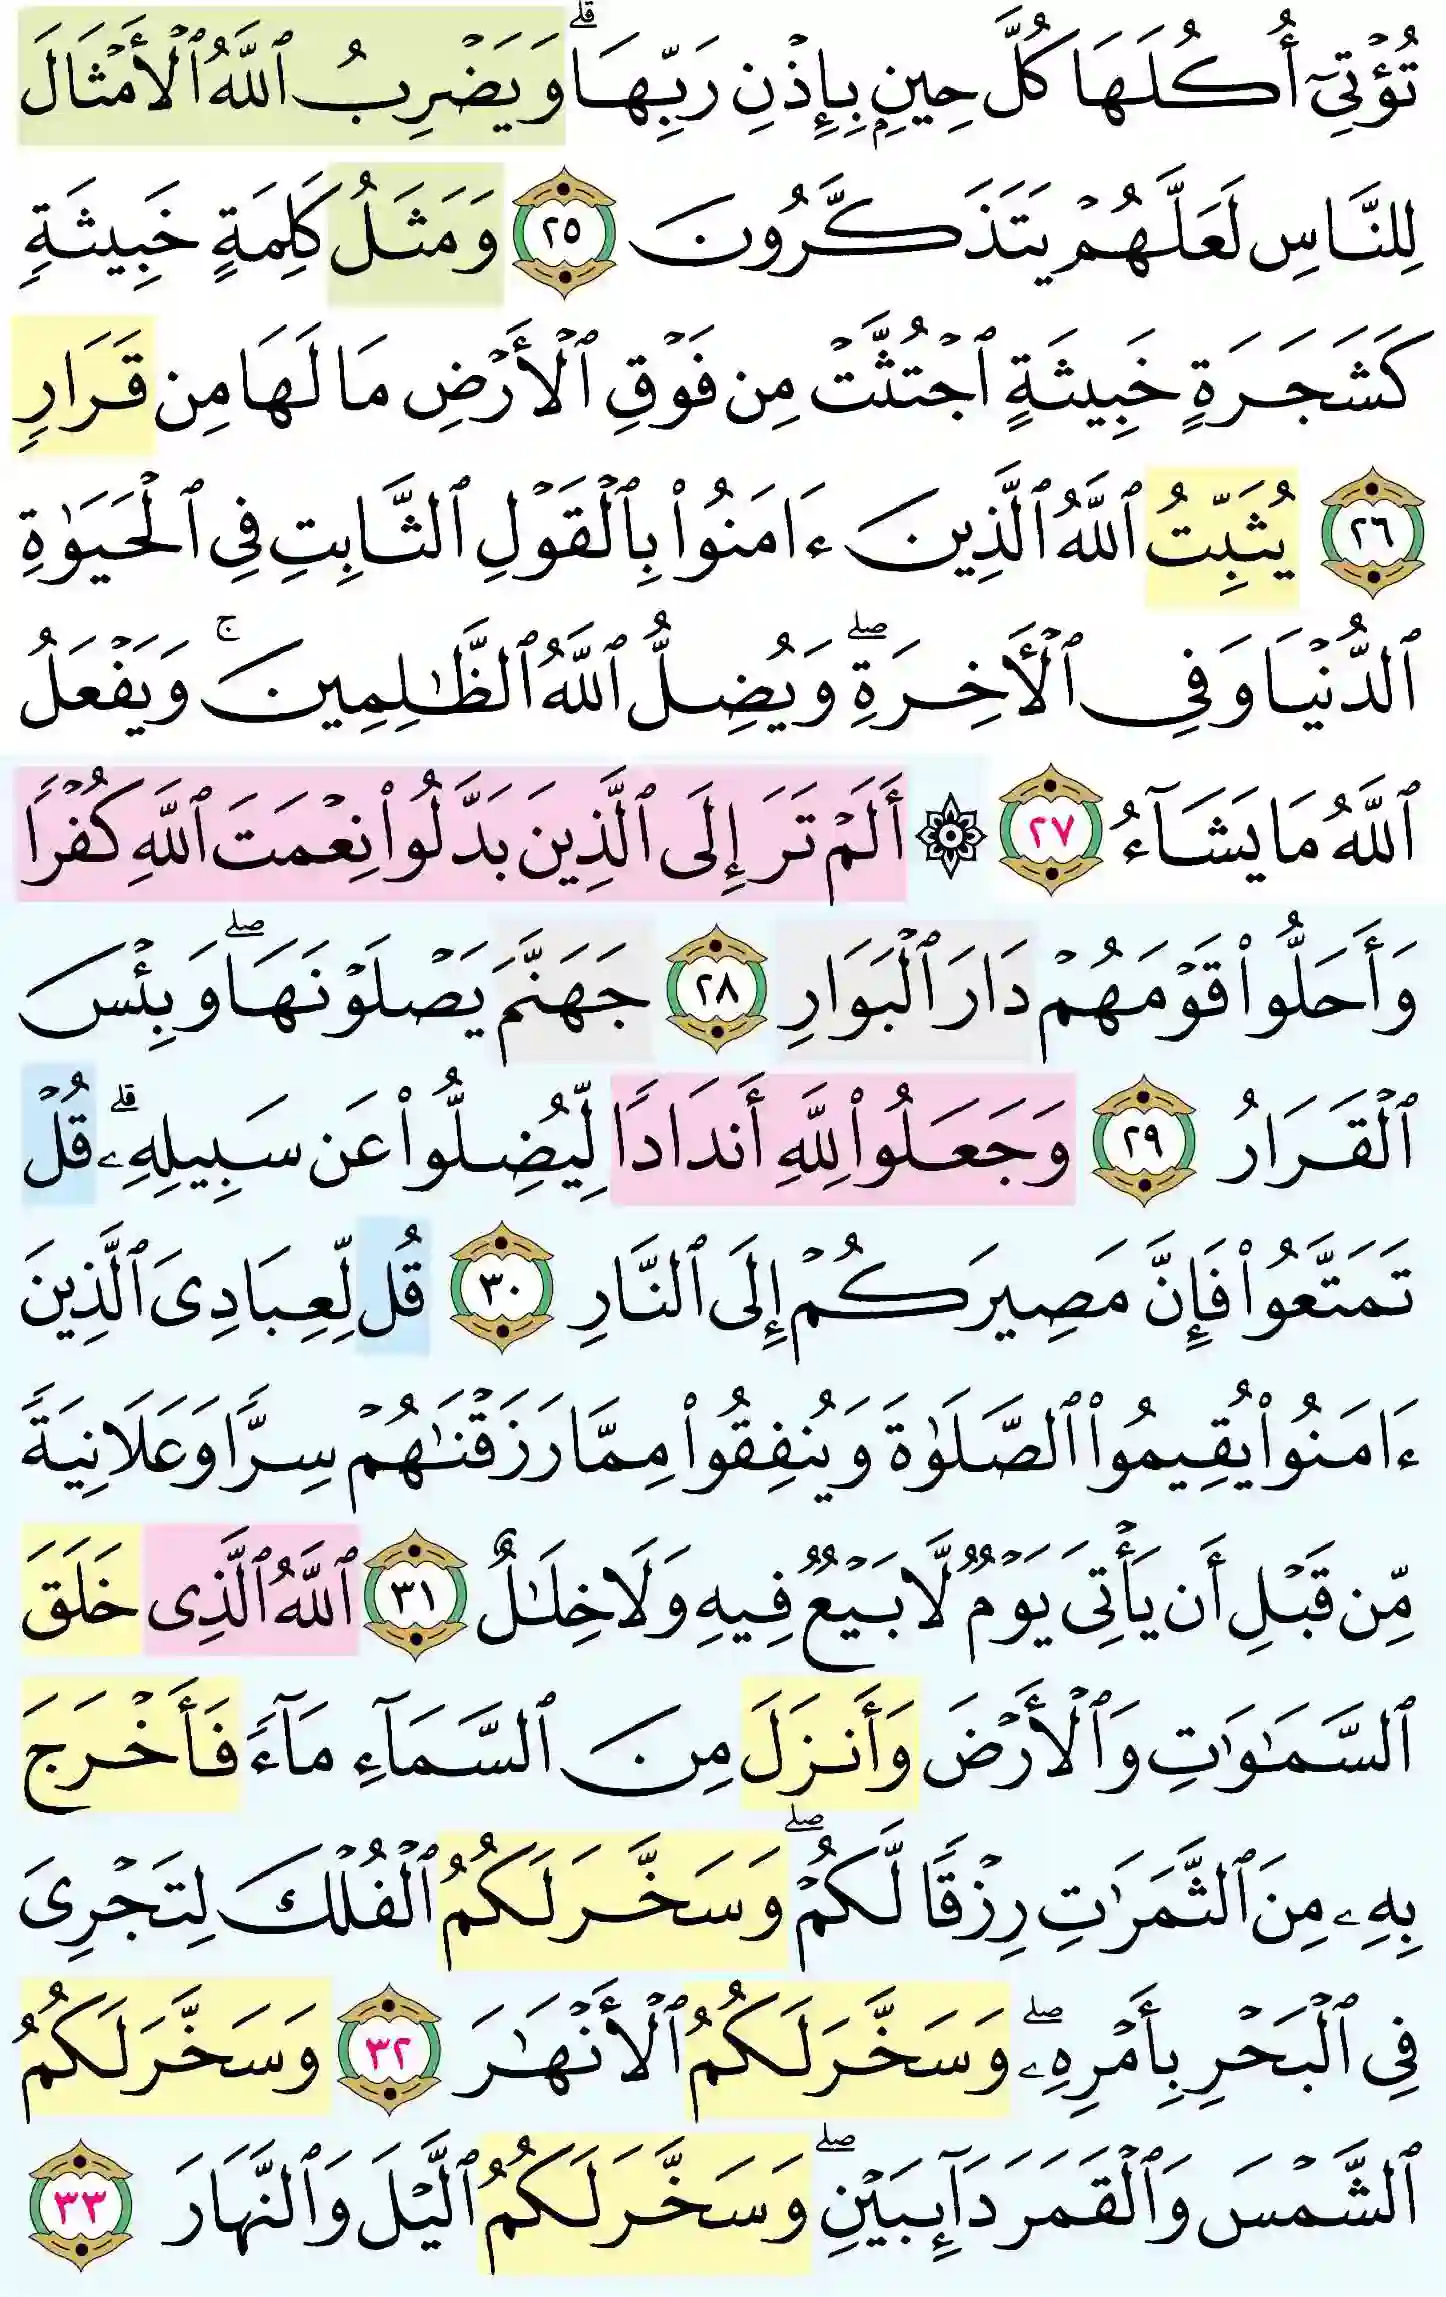 تُؤۡتِيٓ أُكُلَهَا كُلَّ حِينِۭ بِإِذۡنِ رَبِّهَاۗ وَيَضۡرِبُ ٱللَّهُ ٱلۡأَمۡثَالَ
لِلنَّاسِ لَعَلَّهُمۡ يَتَذَكَّرُونَ ٢٥ وَمَثَلُ كَلِمَةٍ خَبِيثَةٖ
كَشَجَرَةٍ خَبِيثَةٍ ٱجۡتُثَّتۡ مِن فَوۡقِ ٱلۡأَرۡضِ مَا لَهَا مِن قَرَارٖ
٢٦ يُثَبِّتُ ٱللَّهُ ٱلَّذِينَ ءَامَنُواْ بِٱلۡقَوۡلِ ٱلثَّابِتِ فِي ٱلۡحَيَوٰةِ
ٱلدُّنۡيَا وَفِي ٱلۡأٓخِرَةِۖ وَيُضِلُّ ٱللَّهُ ٱلظَّٰلِمِينَۚ وَيَفۡعَلُ
ٱللَّهُ مَا يَشَآءُ ٢٧ ۞ أَلَمۡ تَرَ إِلَى ٱلَّذِينَ بَدَّلُواْ نِعۡمَتَ ٱللَّهِ كُفۡرٗا
وَأَحَلُّواْ قَوۡمَهُمۡ دَارَ ٱلۡبَوَارِ ٢٨ جَهَنَّمَ يَصۡلَوۡنَهَاۖ وَبِئۡسَ
ٱلۡقَرَارُ ٢٩ وَجَعَلُواْ لِلَّهِ أَندَادٗا لِّيُضِلُّواْ عَن سَبِيلِهِۦۗ قُلۡ
تَمَتَّعُواْ فَإِنَّ مَصِيرَكُمۡ إِلَى ٱلنَّارِ ٣٠ قُل لِّعِبَادِيَ ٱلَّذِينَ
ءَامَنُواْ يُقِيمُواْ ٱلصَّلَوٰةَ وَيُنفِقُواْ مِمَّا رَزَقۡنَٰهُمۡ سِرّٗا وَعَلَانِيَةٗ
مِّن قَبۡلِ أَن يَأۡتِيَ يَوۡمٞ لَّا بَيۡعٞ فِيهِ وَلَا خِلَٰلٌ ٣١ ٱللَّهُ ٱلَّذِي خَلَقَ
ٱلسَّمَٰوَٰتِ وَٱلۡأَرۡضَ وَأَنزَلَ مِنَ ٱلسَّمَآءِ مَآءٗ فَأَخۡرَجَ
بِهِۦ مِنَ ٱلثَّمَرَٰتِ رِزۡقٗا لَّكُمۡۖ وَسَخَّرَ لَكُمُ ٱلۡفُلۡكَ لِتَجۡرِيَ
فِي ٱلۡبَحۡرِ بِأَمۡرِهِۦۖ وَسَخَّرَ لَكُمُ ٱلۡأَنۡهَٰرَ ٣٢ وَسَخَّرَ لَكُمُ
ٱلشَّمۡسَ وَٱلۡقَمَرَ دَآئِبَيۡنِۖ وَسَخَّرَ لَكُمُ ٱلَّيۡلَ وَٱلنَّهَارَ ٣٣